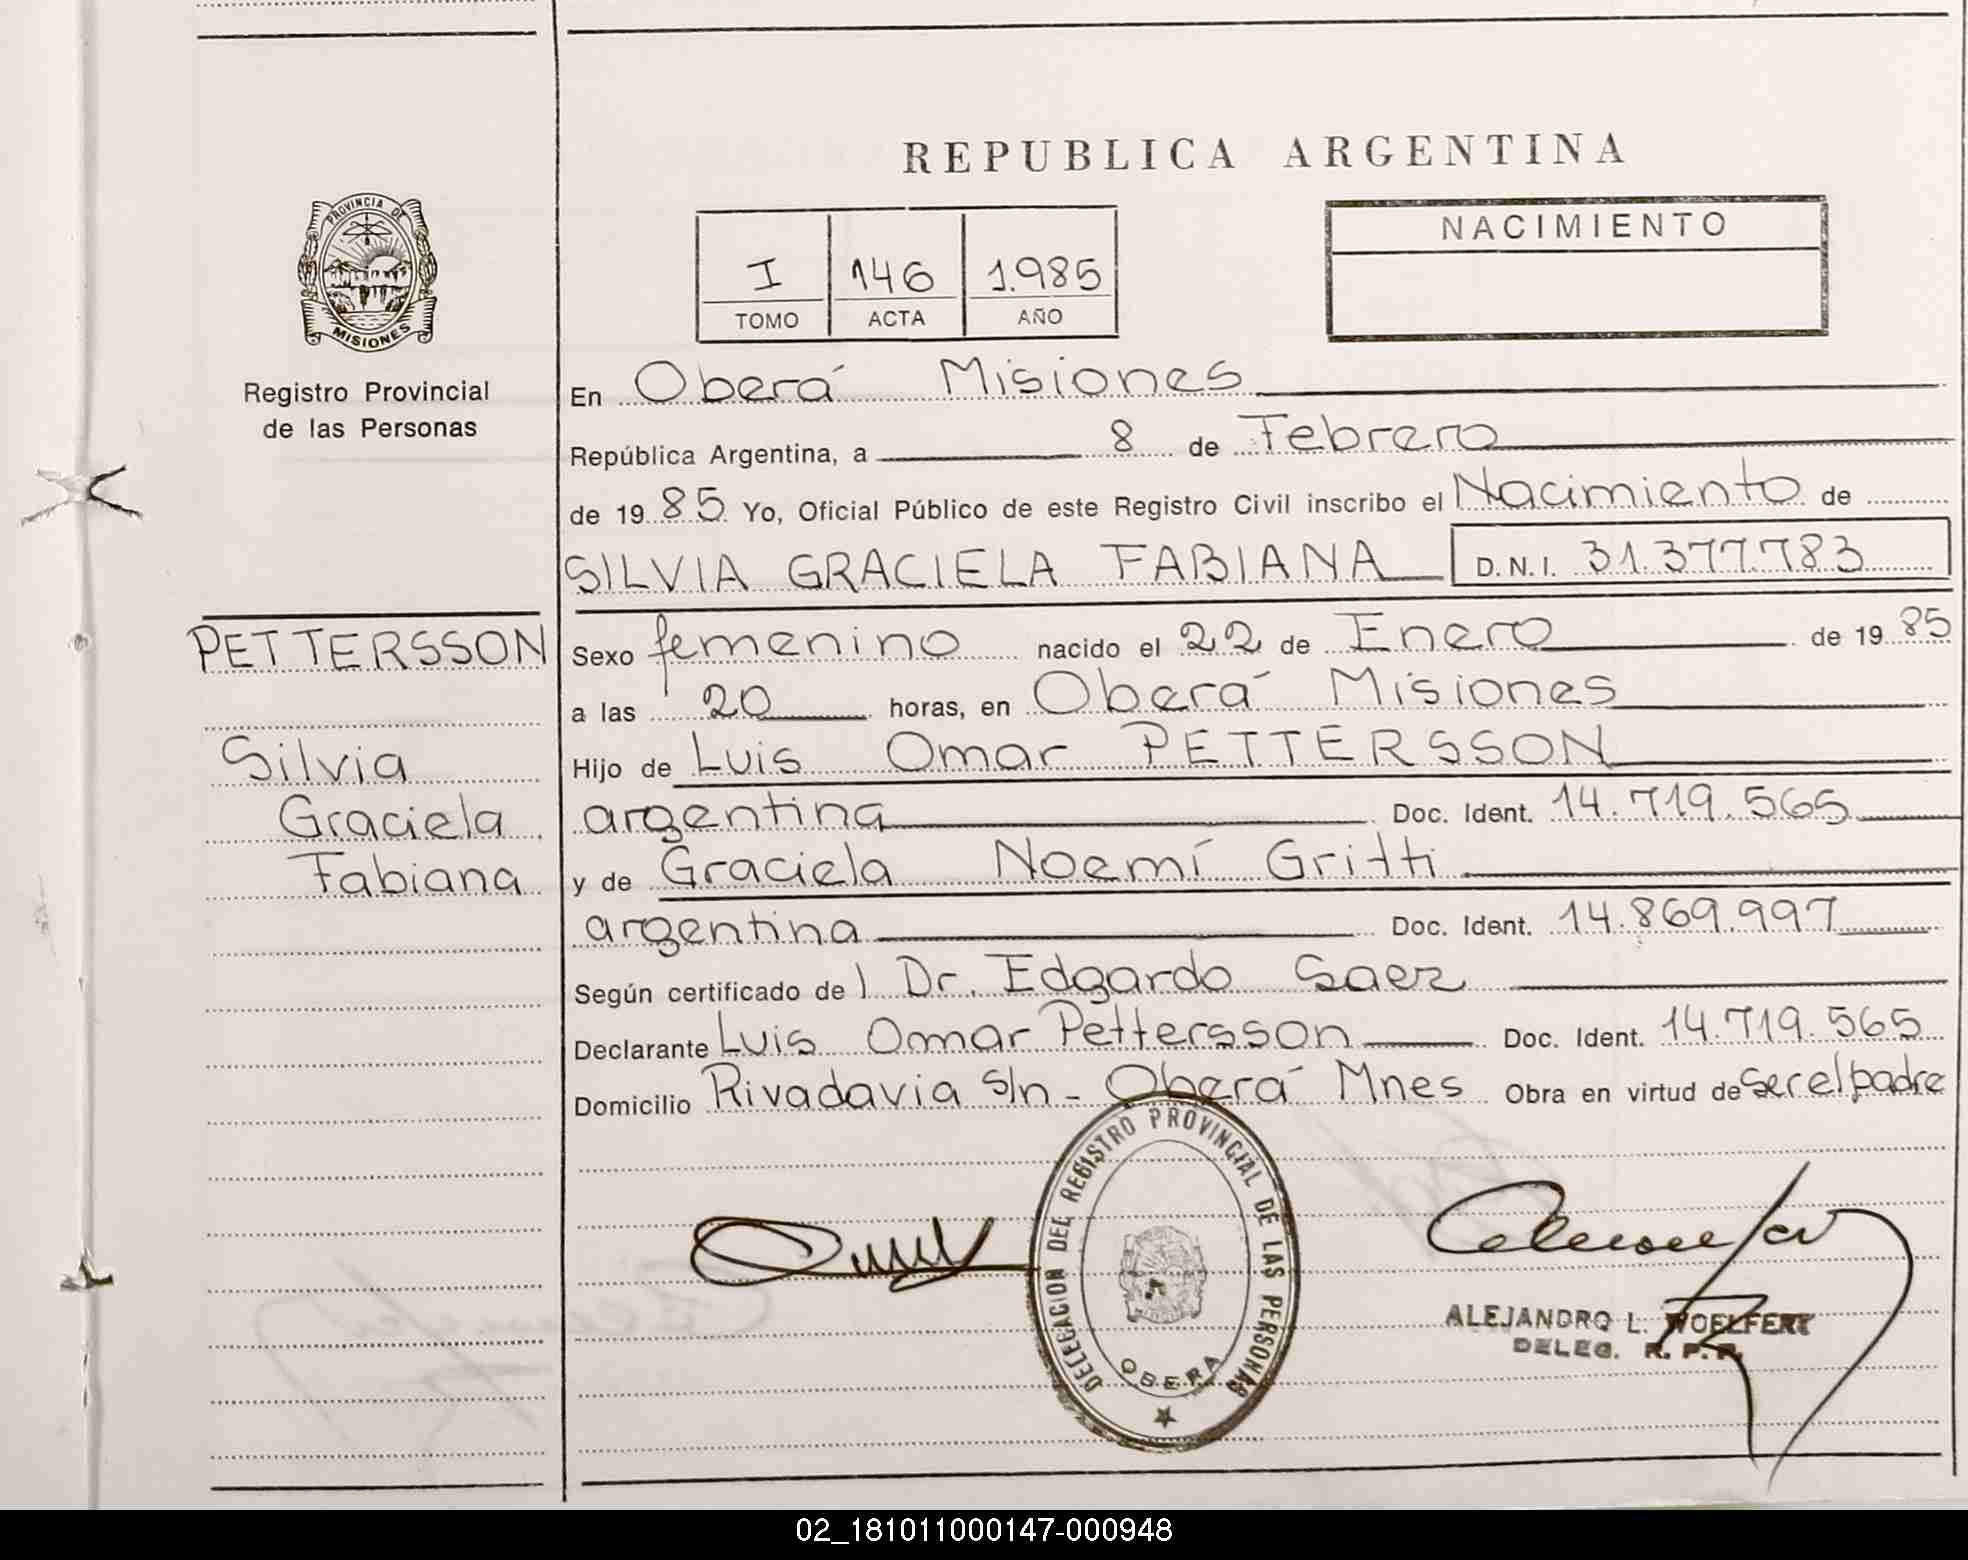 REPUBLICA ARGENTINA
PROVINCIA DE
MISIONES
Registro Provincial
de las Personas
I 146 1.985
TOMO ACTA AÑO
NACIMIENTO
En Oberá Misiones
República Argentina, a 8 de Febrero
de 1985 Yo, Oficial Público de este Registro Civil inscribo el Nacimiento de
SILVIA GRACIELA FABIANA D.N.I. 31.377.783
PETTERSSON
Silvia
Graciela
Fabiana
Sexo femenino nacido el 22 de Enero de 1985
a las 20 horas, en Oberá Misiones
Hijo de Luis Omar PETTERSSON
argentina Doc. Ident. 14.719.565
y de Graciela Noemí Gritti
argentina Doc. Ident. 14.869.997
Según certificado del Dr. Edgardo Saez
Declarante Luis Omar Pettersson Doc. Ident. 14.719.565
Domicilio Rivadavia s/n - Oberá Mnes Obra en virtud de ser el padre
DELEGACION DEL REGISTRO PROVINCIAL DE LAS PERSONAS
OBERA
ALEJANDRO L. WOELFERT
DELEG. R. P. P.
02_181011000147-000948